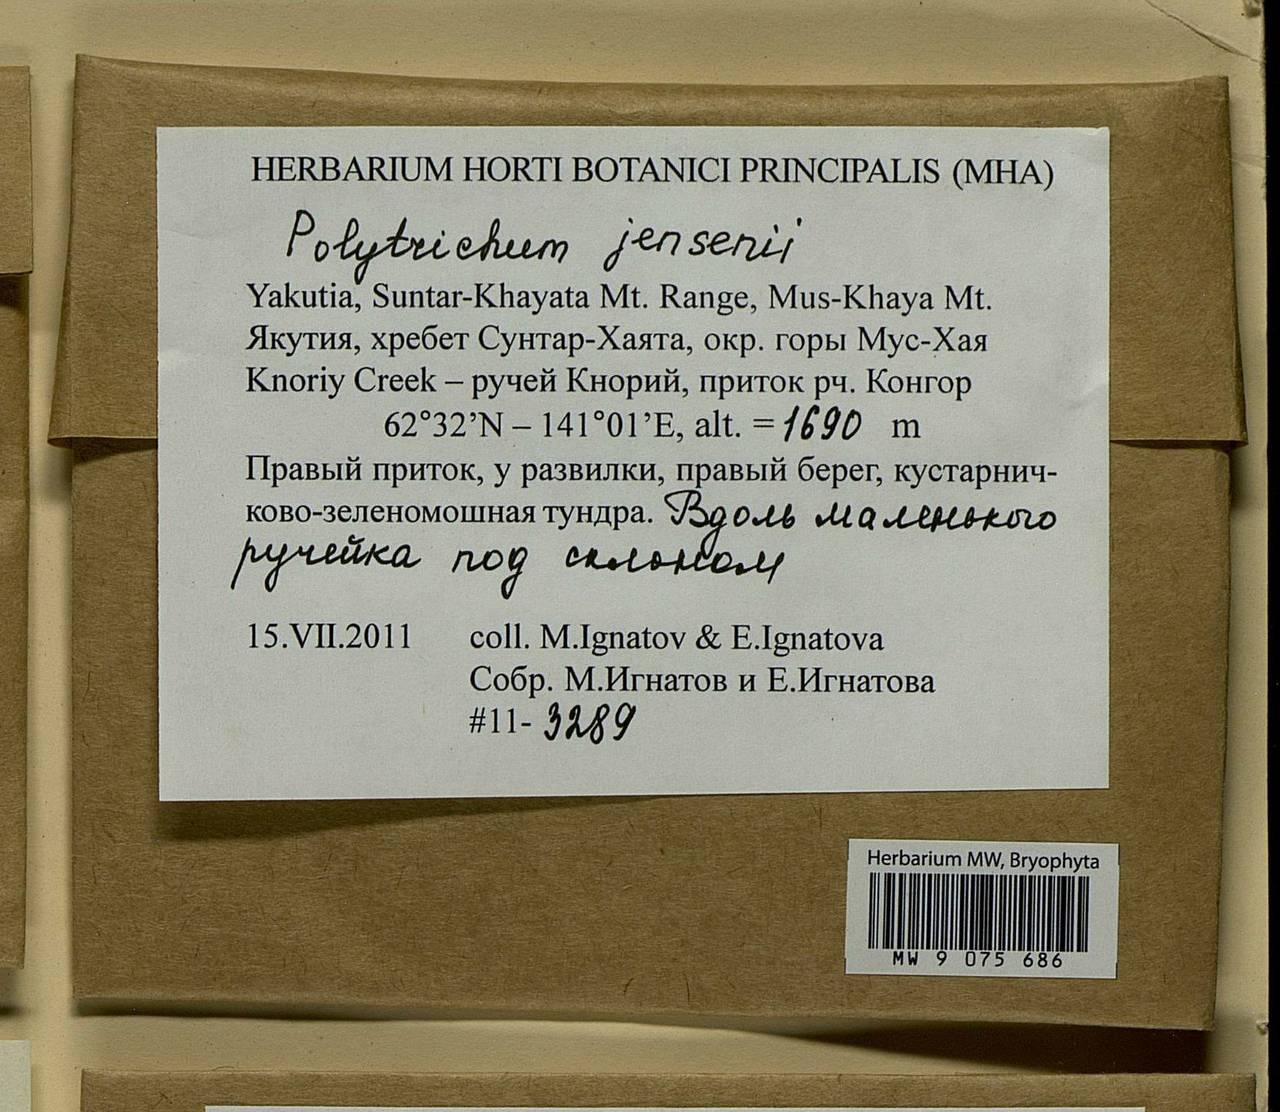 HERBARIUM HORTI BOTANICI PRINCIPALIS (MHA)
Polytrichum jensenii
Yakutia, Suntar-Khayata Mt. Range, Mus-Khaya Mt.
Якутия, хребет Сунтар-Хаята, окр. горы Мус-Хая
Knoriy Creek – ручей Кнорий, приток рч. Конгор
62°32’N – 141°01’E, alt. = 1690 m
Правый приток, у развилки, правый берег, кустарнич-
ково-зеленомошная тундра. Вдоль маленького
ручейка под склоном
15.VII.2011 coll. M.Ignatov & E.Ignatova
Собр. М.Игнатов и Е.Игнатова
#11- 3289
Herbarium MW, Bryophyta
MW 9 075 686